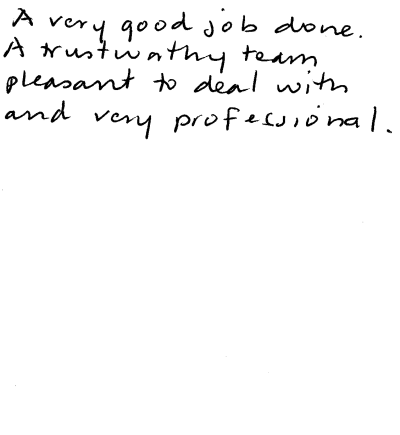 A very good job done.
A trustworthy team
pleasant to deal with
and very professional.